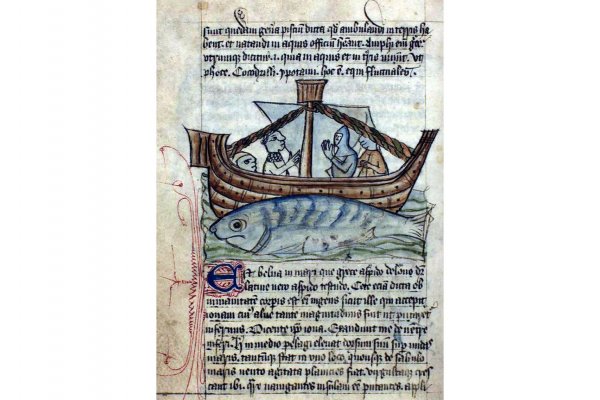 sunt quedam gen̄a pisciū dicta qd̄ ambulandi in terris ha
bent. et natandi in aquis officiū hēant. Amphi em̄
dicitur .i. quia in aquis et in tr̄is vt
phoce. Cocodrilli. ypotami. hoc ē. equi fluctuales.
Est belua in mari que grece aspido delone dr̄
latine uero aspido testudo. Cete eciā dicta ob
inmanitatem corporis est ingens sicut ille qui excepit
ionam cuiꝰ alue tante magnitudinis fuit ut putaret
infernus. Dicente ip̄o iona. Exaudiuit me de uentre
inferi. in medio pelagi eleuat dorsum suum sup̄ undas
maris. stat in uno loco. quousque de sabulo
maris uento agitata planicies fiat. cres
cant ibi. nauigantes insulam eē putantes. appli